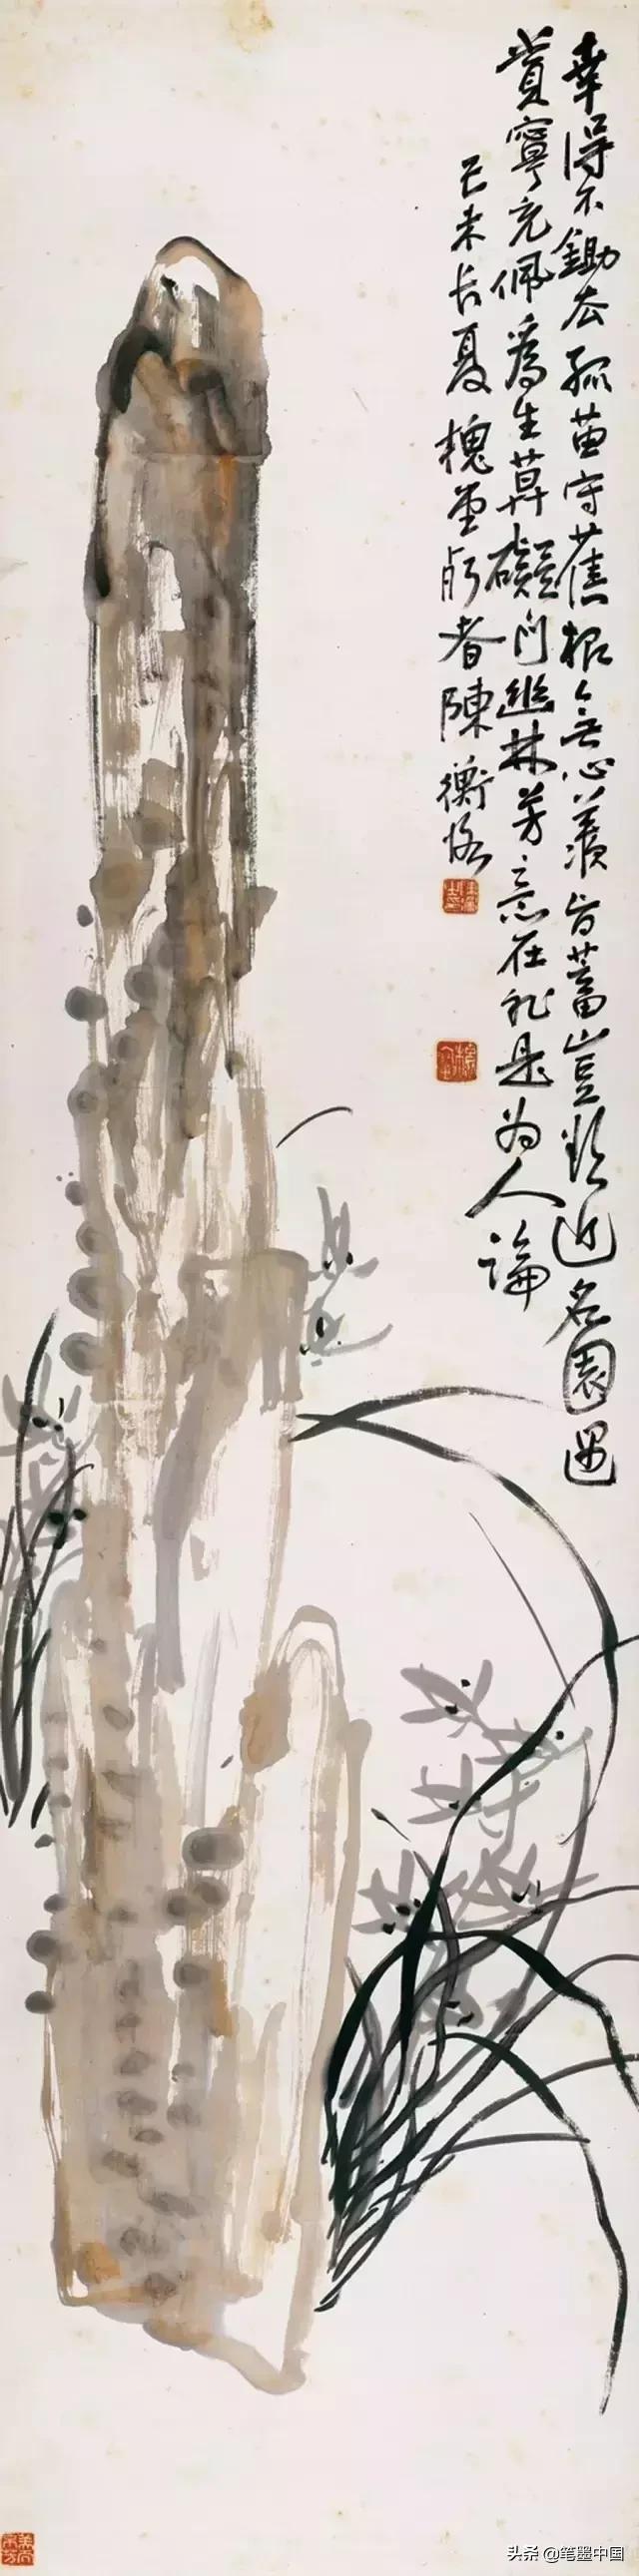 幸得不鋤去孤苗守舊根無心羨旨蓄豈欲近名園遇
賞寧充佩為生莫礙門幽林芳意在非是為人論
己未長夏槐堂朽者陳衡恪
头条 @笔墨中国